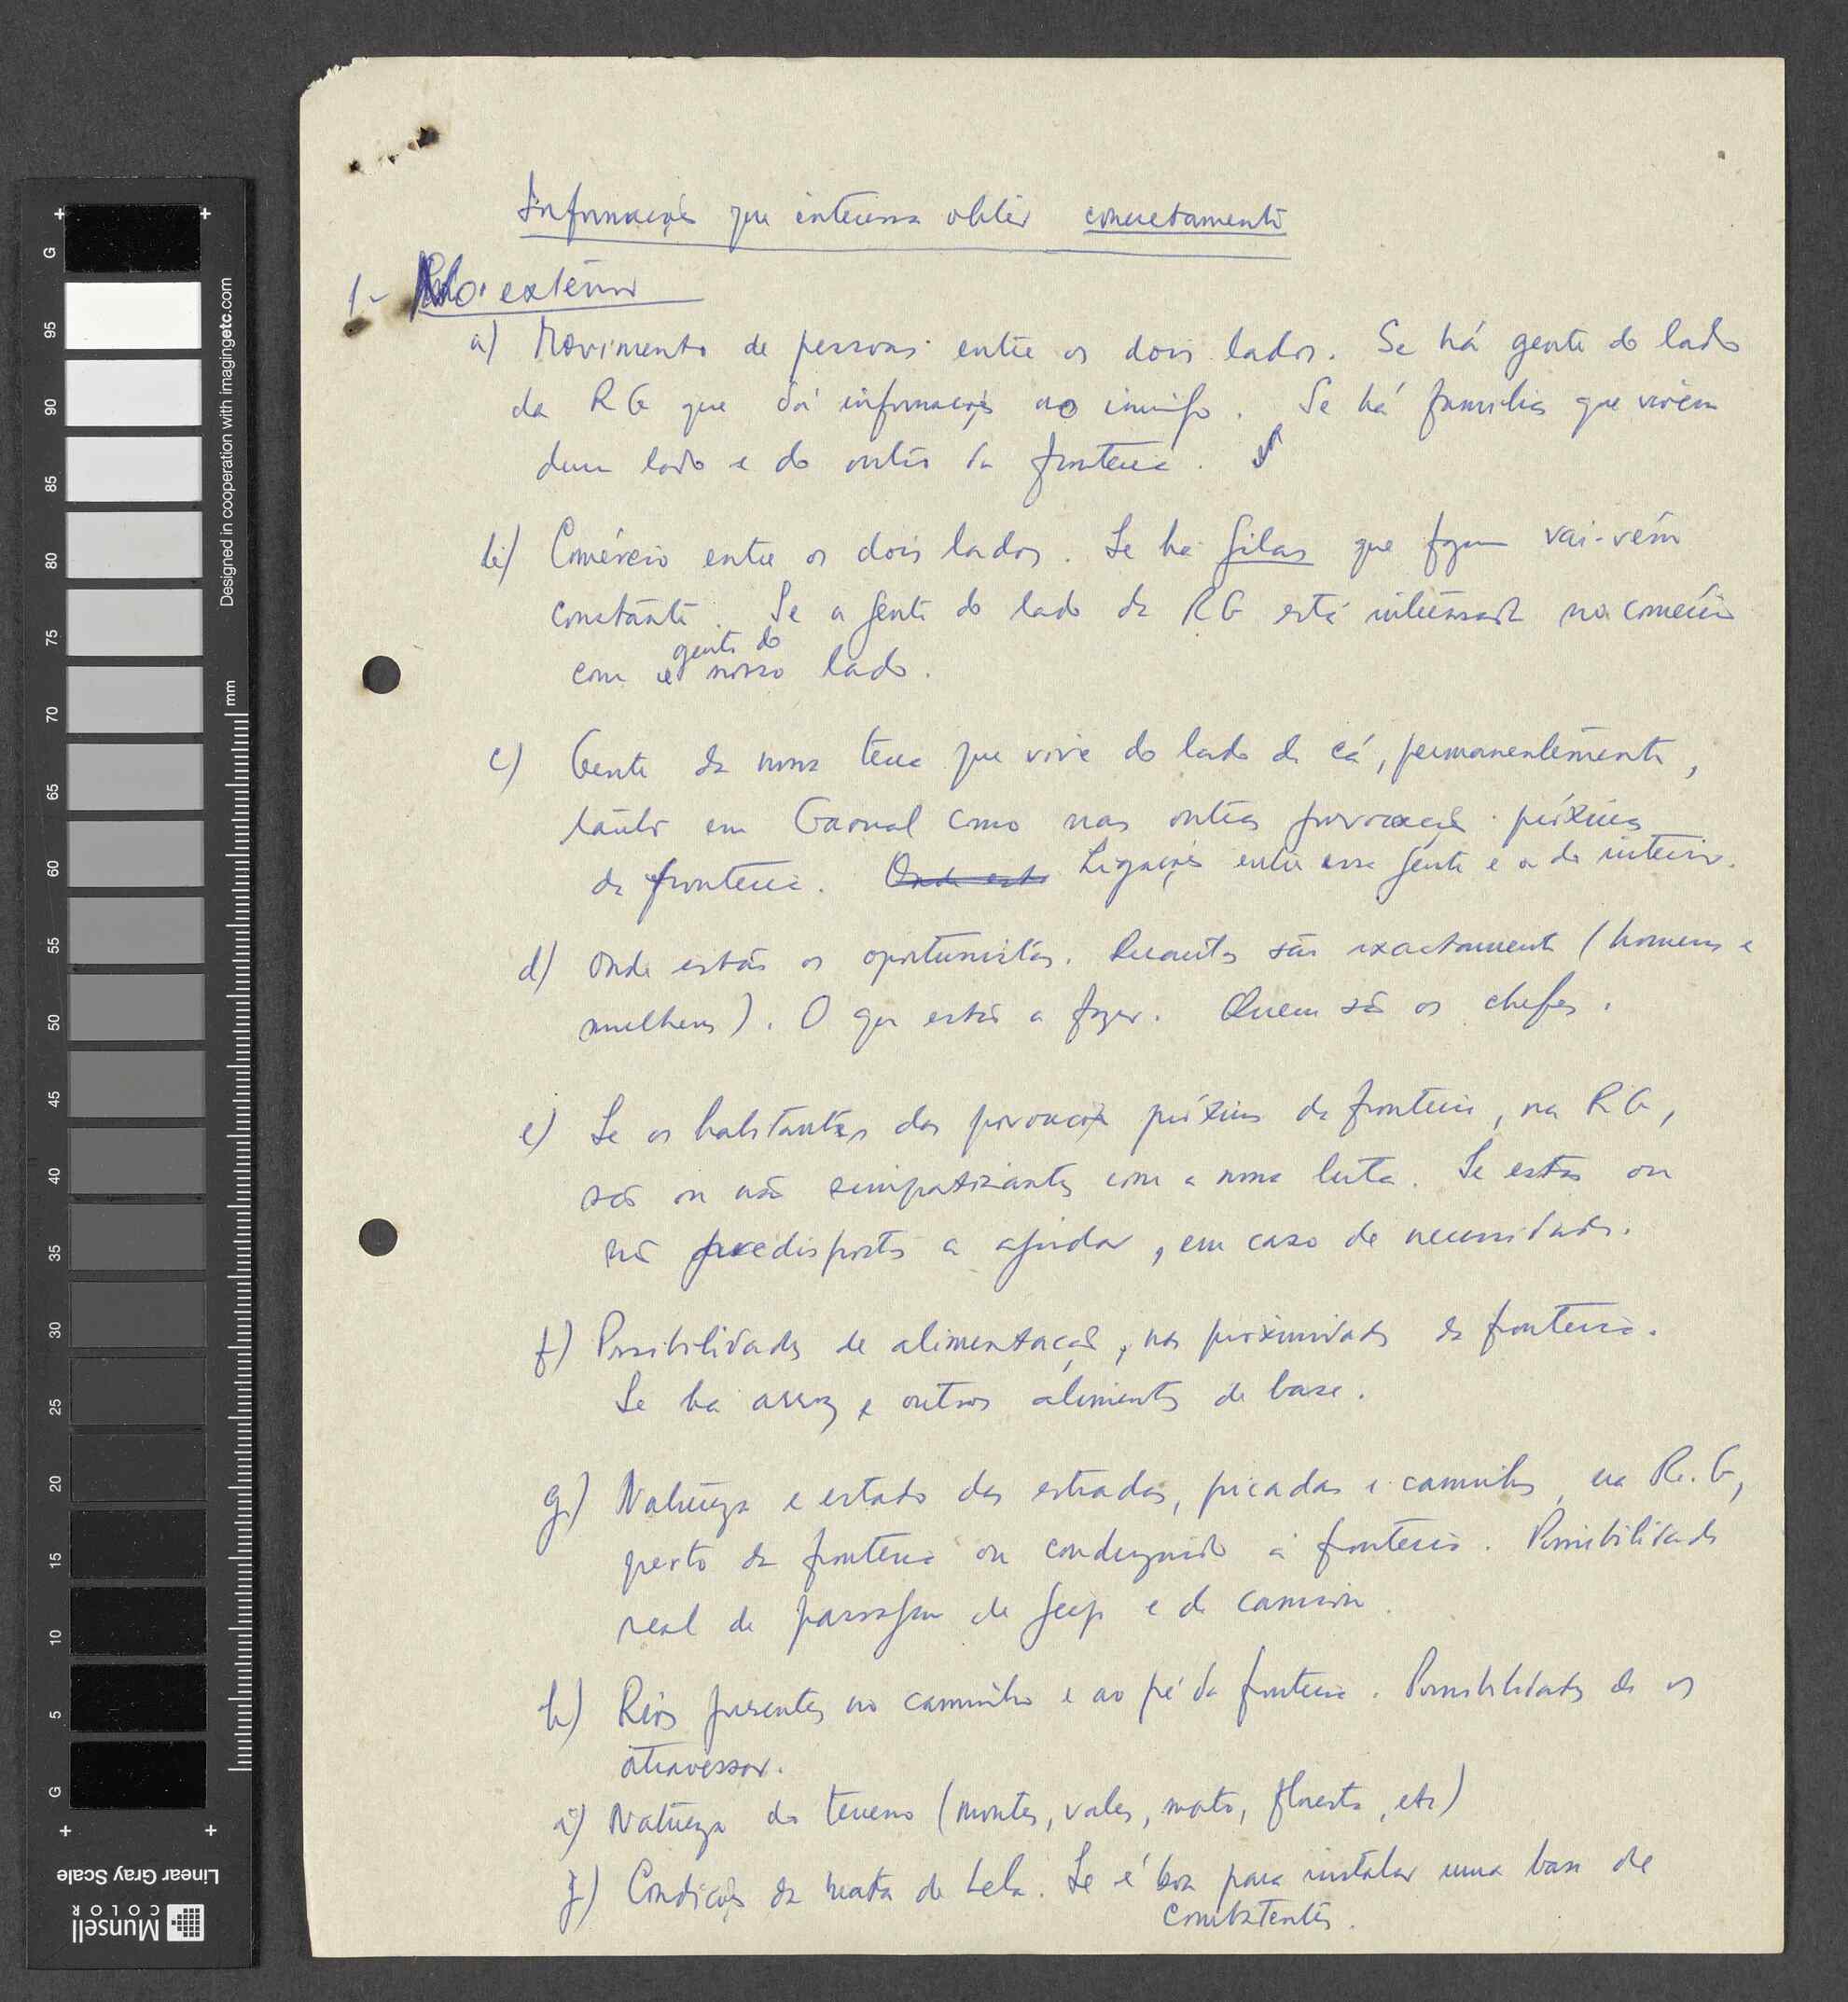 Informações que interessa obter concretamente
1- No exterior
a) Movimento de pessoas entre os dois lados. Se há gente do lado
da RG que dá informações ao inimigo. Se há famílias que vivem
dum lado e do outro da fronteira.
b) Comércio entre os dois lados. Se ha gilas que fazem vai-vém
constante. Se a gente do lado da RG está interessada no comércio
gente do
com o nosso lado.
c) Gente da nossa terra que vive do lado de cá, permanentemente,
tanto em Gaoual como nas outras povoações próximas
da fronteira. Onde está Ligações entre essa gente e a do interior.
d) Onde estão os oportunistas. Quantos são exactamente (homens e
mulheres). O que estão a fazer. Quem são os chefes.
e) Se os habitantes das povoações próximas da fronteira, na RG,
são ou não simpatizantes com a nossa luta. Se estão ou
não predispostos a ajudar, em caso de necessidade.
f) Possibilidades de alimentação, nas proximidades da fronteira.
Se ha arroz e outros alimentos de base.
g) Natureza e estado das estradas, picadas e caminhos, na R.G,
perto da fronteira ou conduzindo à fronteira. Possibilidade
real de passagem de jeep e de camion.
h) Rios presentes no caminho e ao pé da fronteira. Possibilidades de os
atravessar.
i) Natureza do terreno (montes, vales, mato, floresta, etc)
j) Condições da mata de Lela. Se é boa para instalar uma base de
combatentes.
G
95
90
85
80
75
70
65
60
55
50
45
40
35
30
25
20
15
10
5
G
mm
Designed in cooperation with imagingetc.com
Linear Gray Scale
Munsell
COLOR